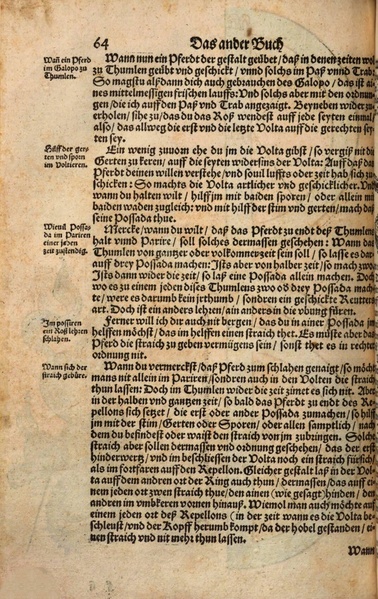 64 Das ander Buch
Wañ ein Pferd
im Galopo zu
Thumlen.
Wann nun ein Pferdt der gestalt geübet / daß in denen zeiten wol
zu Thumlen geübt vnd geschickt / vnnd solchs im Paß vnnd Trab:
So magstu alßdann dich auch gebrauchen des Galopo / das ist ai-
nes mittelmessigen frischen lauffs: Vnd solchs aber mit den ordnun-
gen / die ich auff den Paß vnd Trab angezaigt. Beyneben widerzu-
erholen / sihe zu / das du das Roß wendest auff jede seyten einmal /
also / das allweg die erst vnd die letzte Volta auff die gerechten sey-
ten sey.
Hülff der ger-
ten vnd sporn
im Voltieren.
Ein wenig zuuom ehe du jm die Volta gibst / so vergiß nit die
Gerten zu keren / auff die seyten widersins der Volta: Auff daß das
Pferdt deinen willen verstehe / vnd souil luffts oder zeit hab sich zu-
schicken: So machts die Volta artlicher vnd geschicklicher. Vnd
wann du halten wilt / hilff jm mit baiden sporen / oder allein mit
baiden waden zugleich: vnd mit hilff der stim vnd gerten / mach das
seine Possada thue.
Wieuil Possa-
da im Pariren
einer jeden
zeit zustendig.
Mercke / wann du wilt / daß das Pferdt zu endt deß Thumlens
halt vnnd Parire / soll solches dermassen geschehen: Wann das
Thumlen von gantzer oder volkomner zeit sein soll / so lasse es dar-
auff drey Possada machen: Ists aber von halber zeit / so mach zwo:
Ists dann wider die zeit / so laß eine Possada allein machen. Doch
wo es zu einem jeden dises Thumlens zwo oder drey Possada mach-
te / were es darumb kein jrthumb / sondren ein geschickte Reutters
art. Doch ist ein anders lehren / ain anders in die vbung füren.
Im possiren
ein Roß lehren
schlahen.
Ferner will ich dir auch nit bergen / das du in ainer Possada jm
helffen möchst / das im helffen einen straich thet. Es muste aber das
Pferd die straich zu geben vermügens sein / sonst thet es in rechter
ordnung nit.
Wann sich der
straich gebüre.
Wann du vermerckst / daß Pferd zum schlahen genaigt / so möcht
mans nit allein im Pariren / sondren auch in den Volten die straich
thun lassen: Doch im Thumlen wider die zeit zimet es sich nit. Aber
in der halben vnd gantzen zeit / so bald das Pferdt zu endt des Re-
pellons sich setzet / die erst oder ander Possada zumachen / so hilff
jm mit der stim / Gerten oder Sporen / oder allen samptlich / nach
dem du befindest oder waist den straich von jm zubringen. Solche
straich aber sollen dermassen vnd ordnung geschehen / das der erst
hinderwortz / vnd im beschliessen der Volta noch ein straich fürsich /
als im fortfaren auff den Repellon. Gleicher gestalt laß in der Vol-
ta auff dem andren ort der Ring auch thun / dermassen / das auff ei-
nem jeden ort zwen straich thue / den ainen (wie gesagt) hinden / den
andren im vmbkeren vornen hinauß. Wiewol man auch möchte auff
einem jeden ort deß Repellons (in der zeit wann es die Volta be-
schleust / vnd der Kopff herumb kompt / da der hobel gestanden / ei-
nen straich vnd nit mehr thun lassen.
Wann